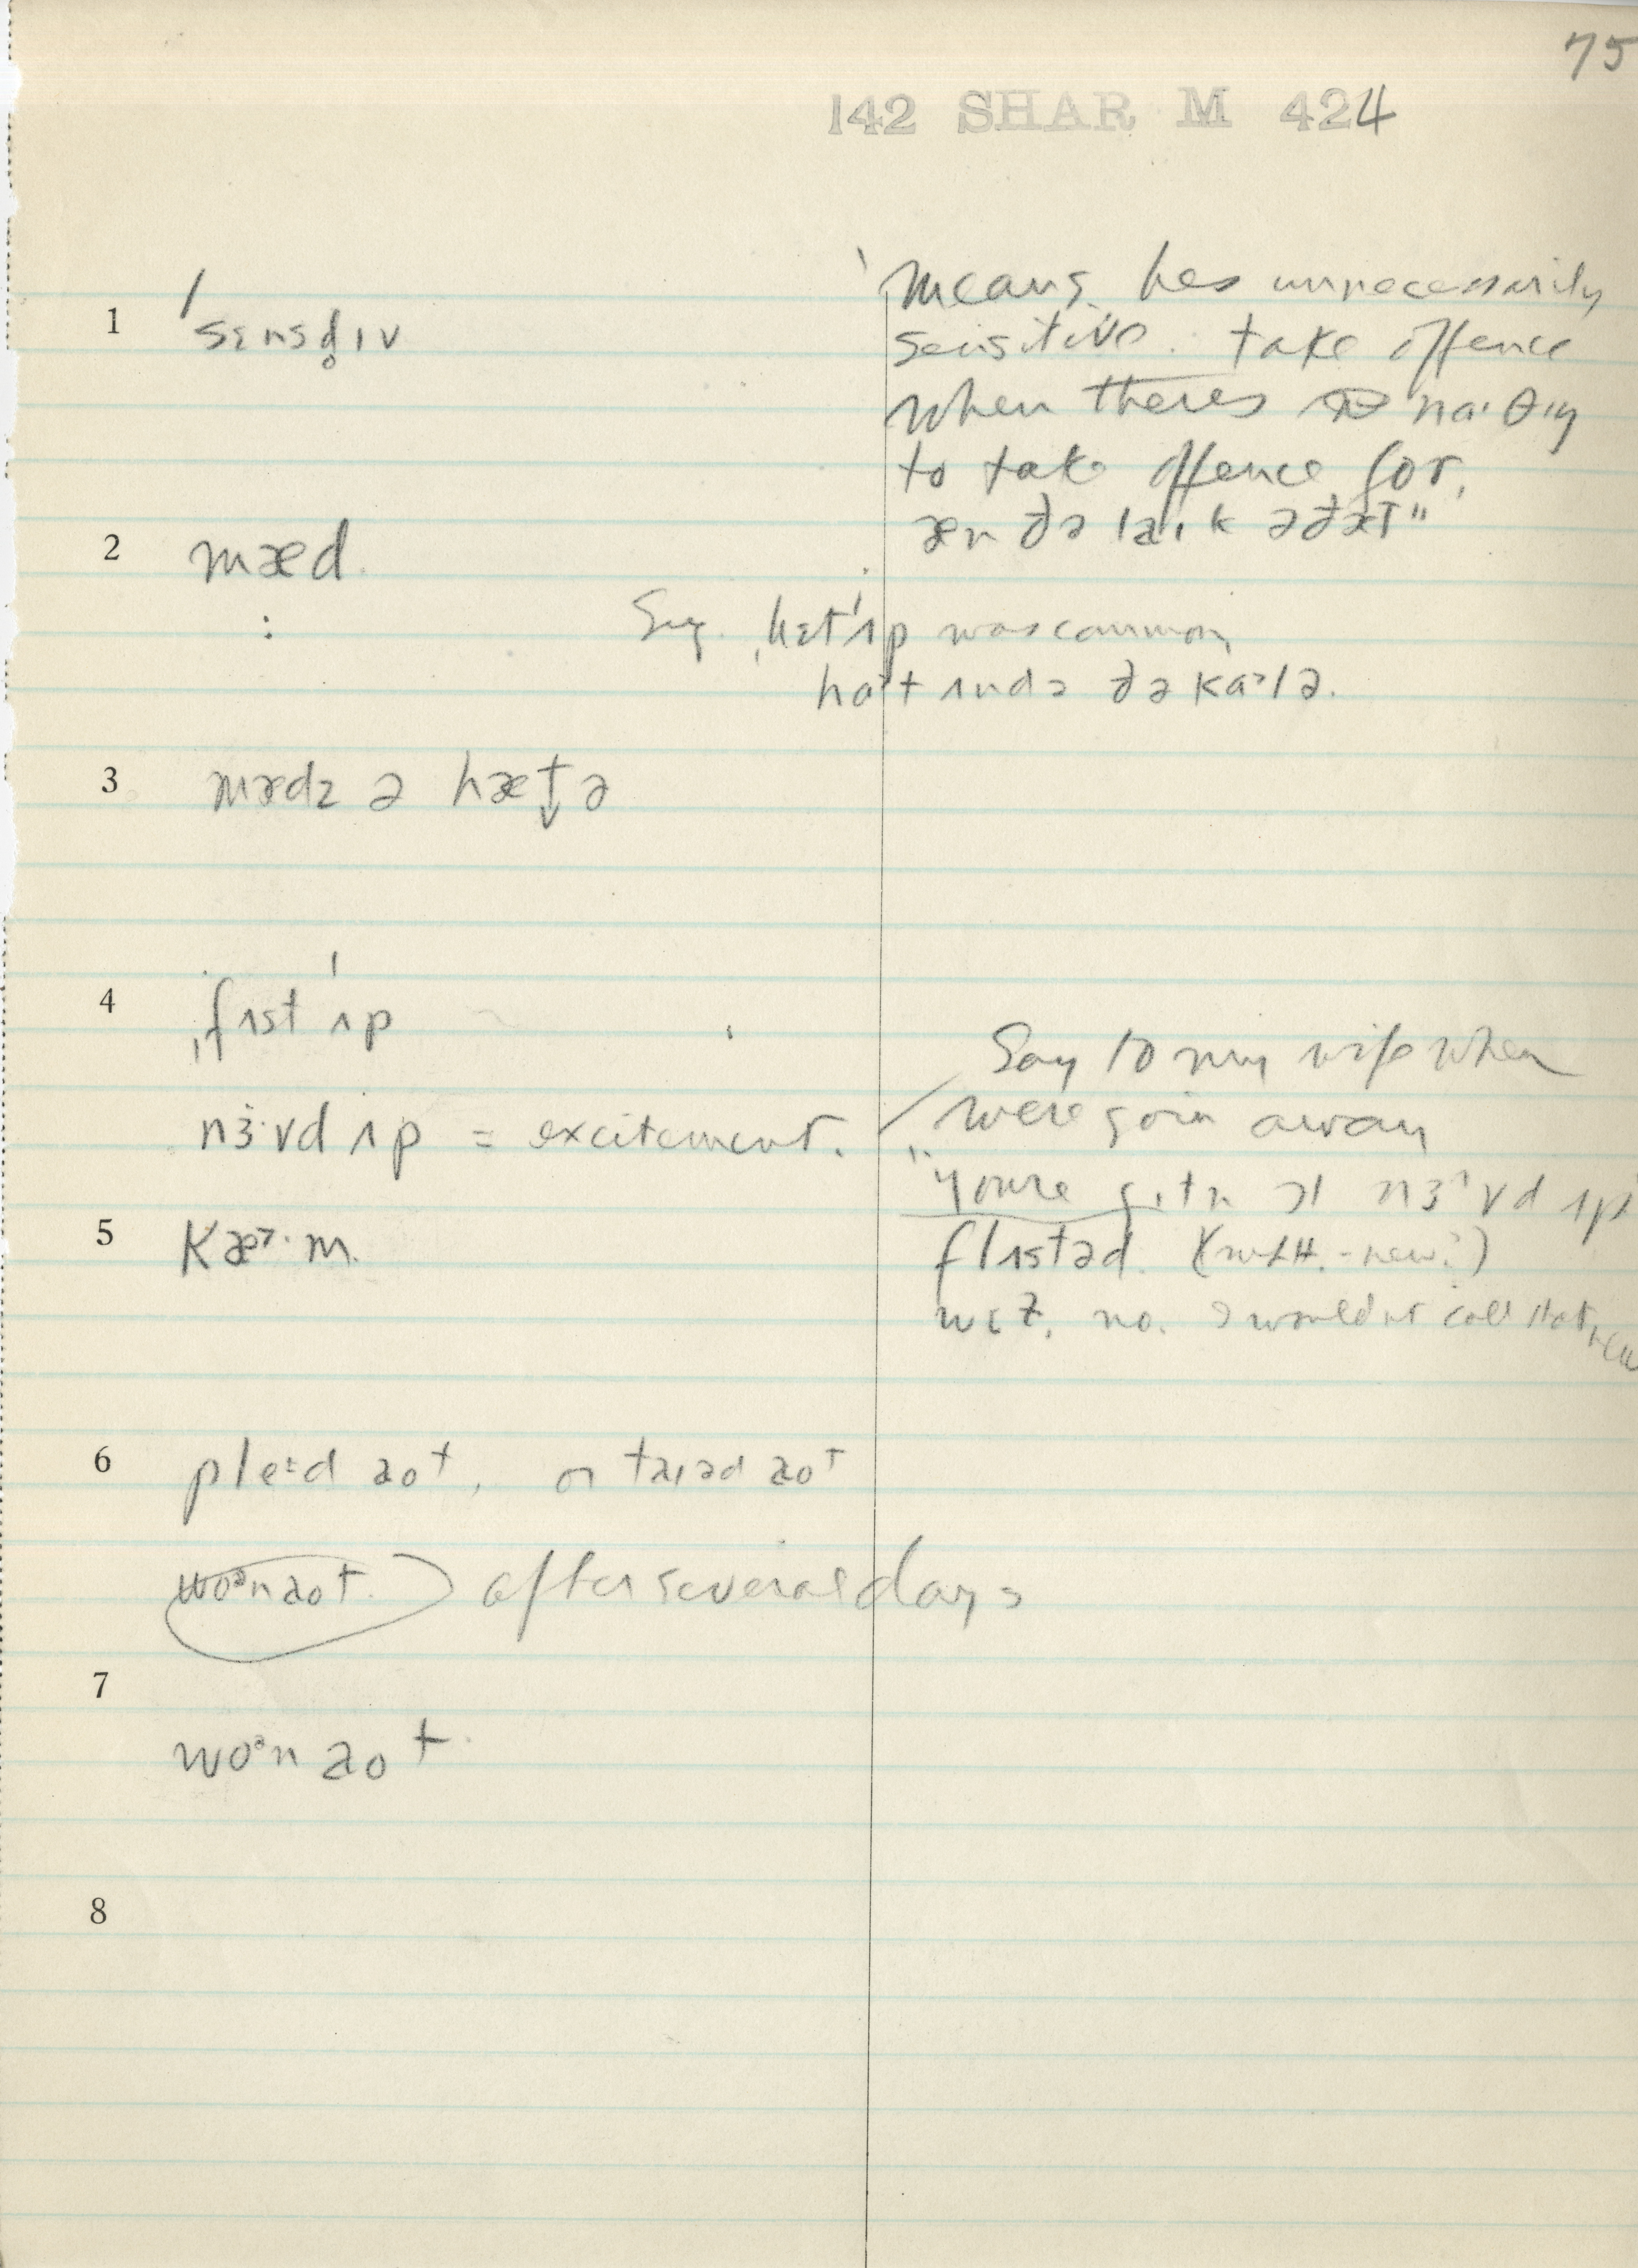 75
142 SHAR M 424
1 ˈsɛnsd̥ɪv
"means hes unnecessarily
sensitive. take offence
when theres naˑθɪŋ
to take offence for,
æn ðə laɪk əðæt"
2 mæd
ˌhɛtˈʌp was common
ʌndə ðə kaˑlə.
3 mædz ə hætə
4 ˌfʌstˈʌp
nɜˑvd ʌp = excitement.
Say to my wife when
were goin away
"youre nɜˑvd ʌp"
flʌstəd. -new?)
no. I wouldnt call that new
5 kæ·m.
6 pleːd aot, or taɪəd aot
woᵊn aot. after several days
7
woᵊn aot
8